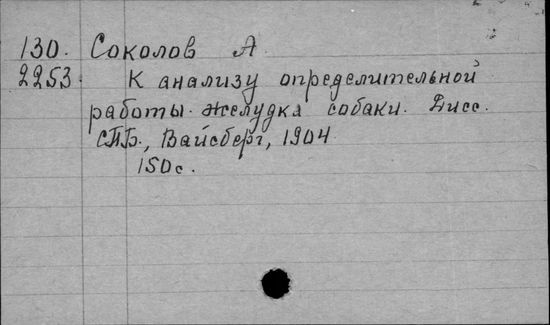 130. Соколов А
2253. К анализу определительной
работы желудка собаки. Дисс.
СПБ., Вайсберг, 1904
150с.